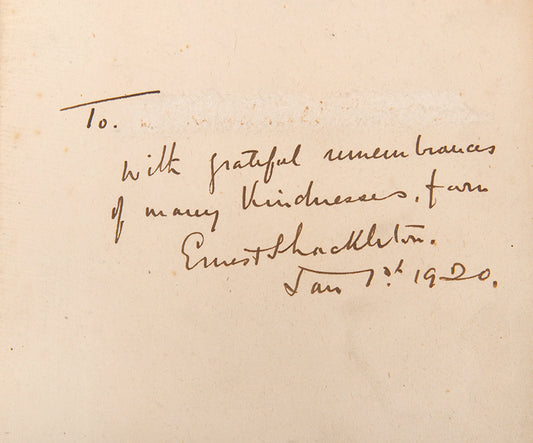 To.
with grateful remembrances
of many kindnesses, from
Ernest Shackleton.
Jan 1st 1920.